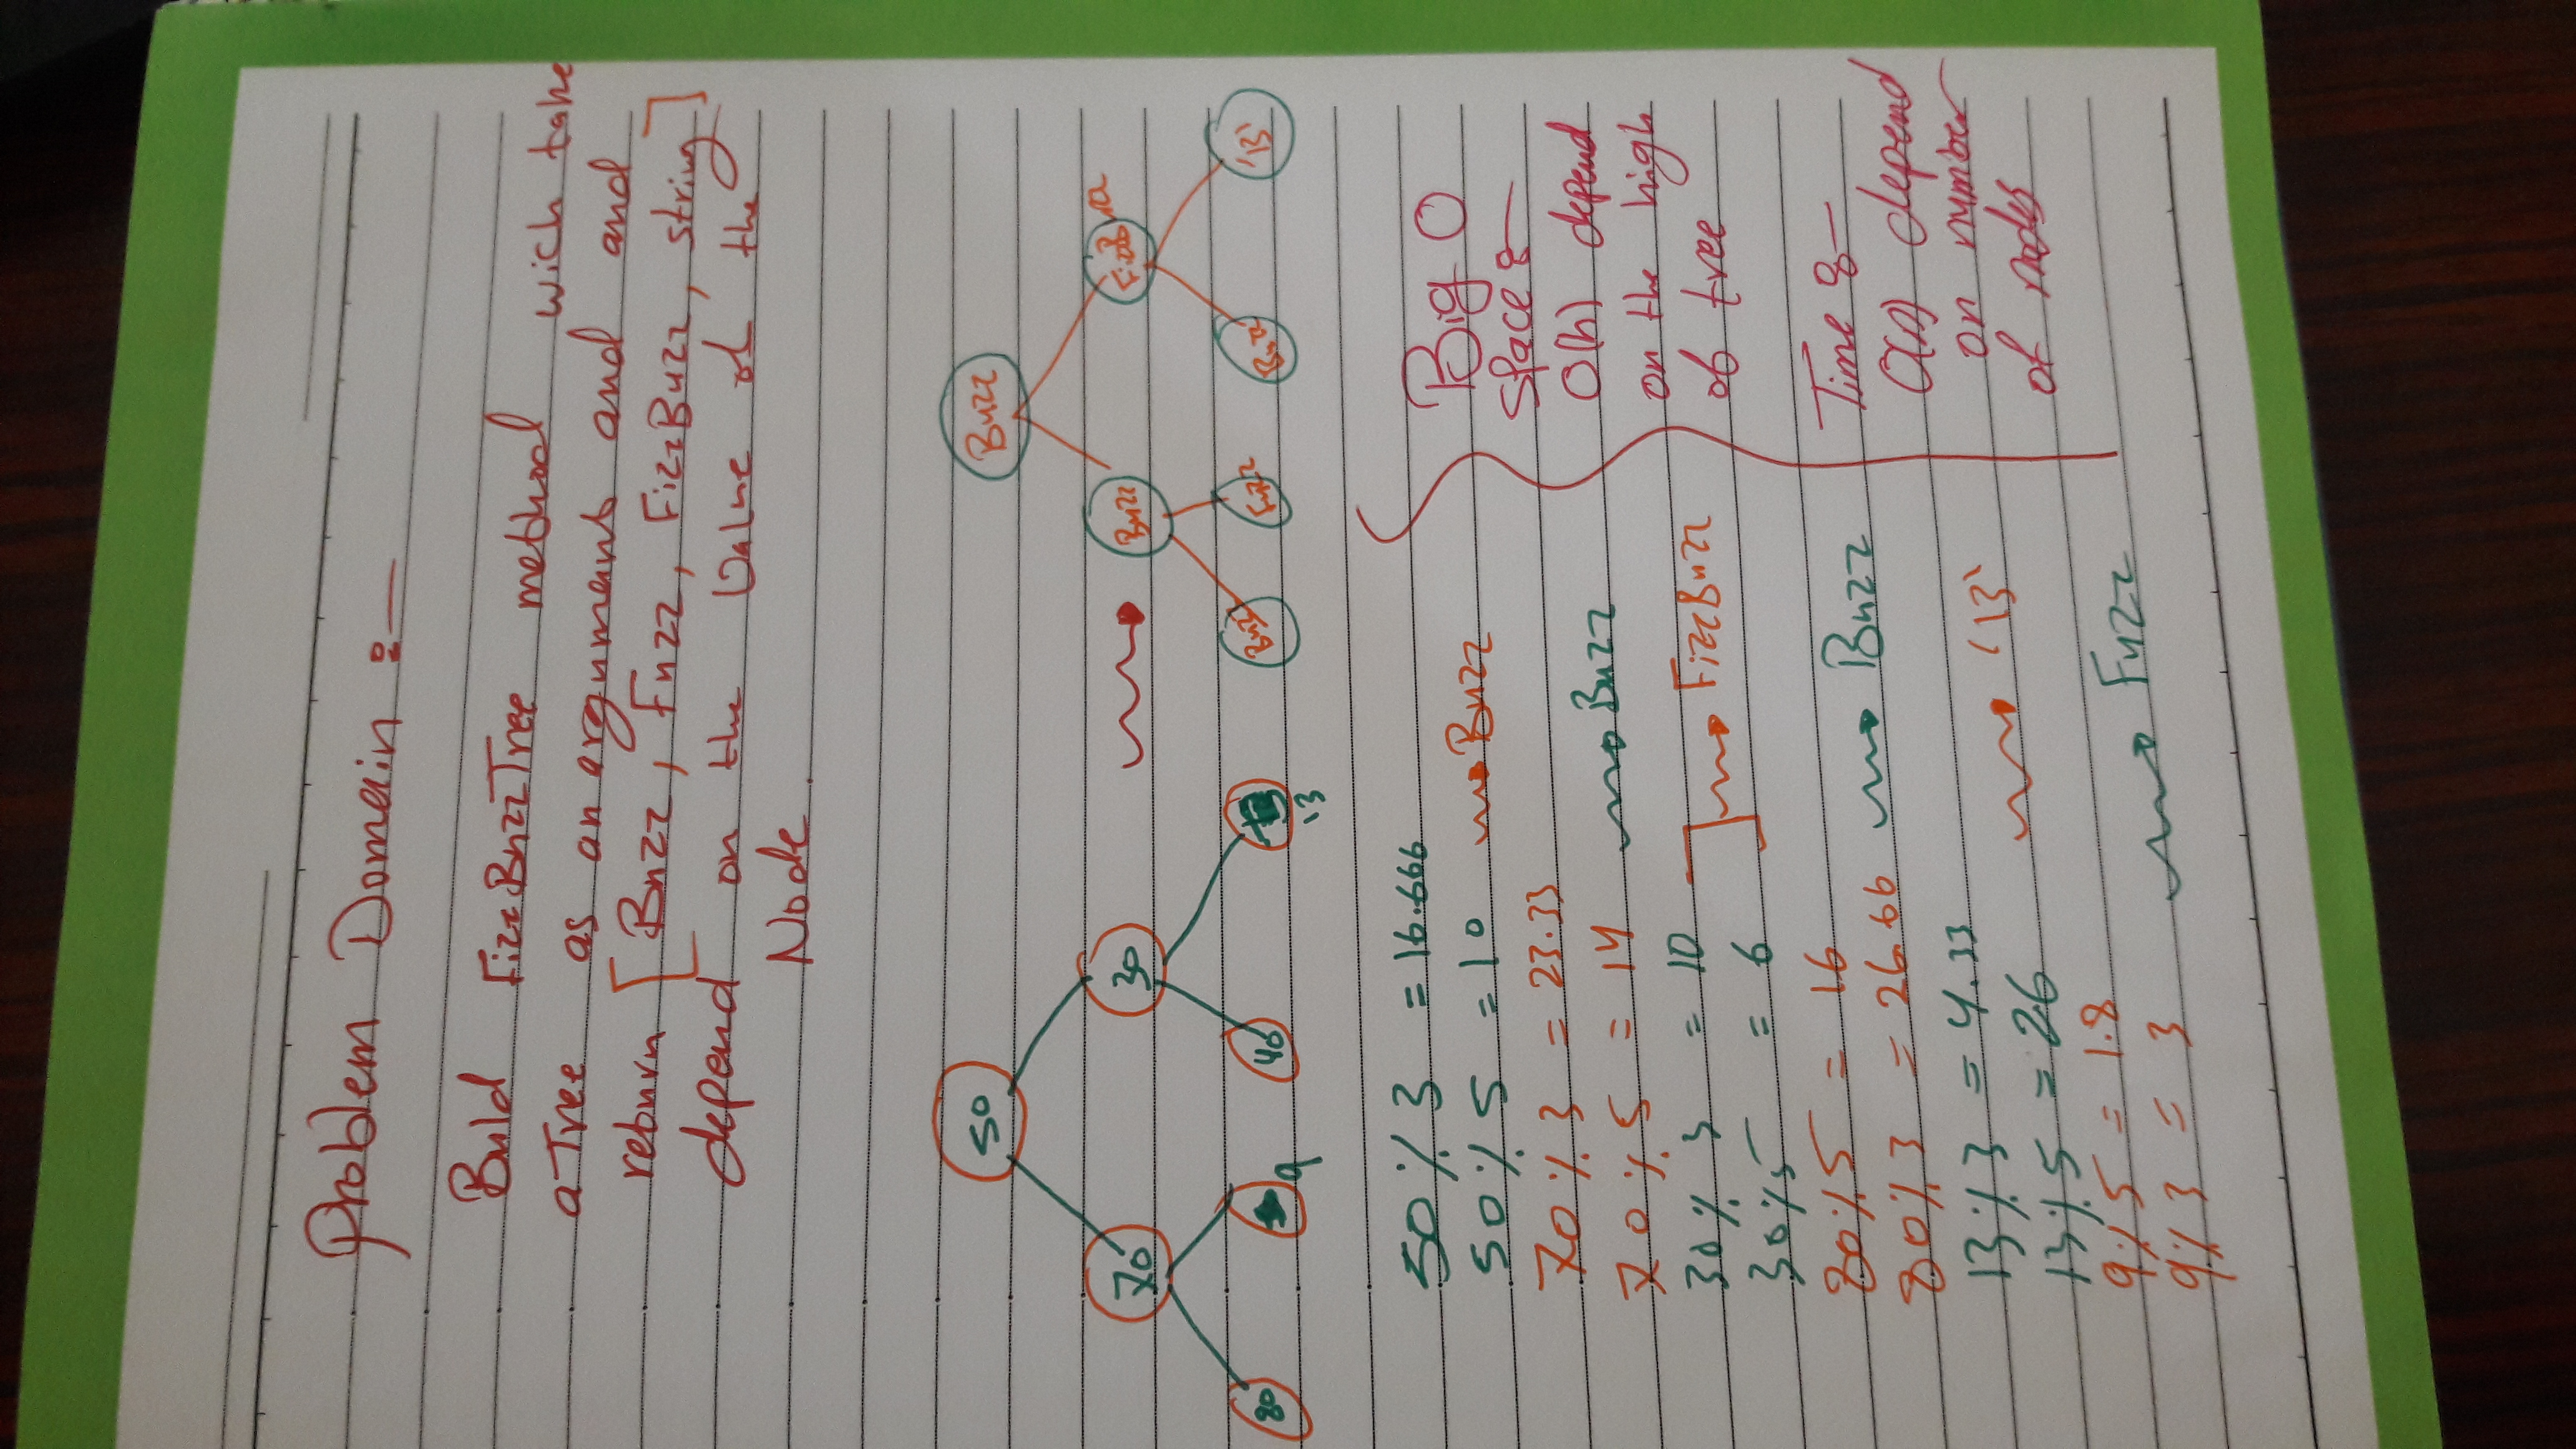 Problem Domain :-
Buld FizzBuzzTree method wich take
a Tree as an argument and and
return [Buzz, Fuzz, FizzBuzz, string]
depend on the Value of the
Node.
50 Buzz
70 30 Buzz FizzBuzz
80 9 40 13 Buzz Fuzz Buzz '13'
50 % 3 = 16.666
50 % 5 = 10 Buzz
70 % 3 = 23.33
70 % 5 = 14 Buzz
30 % 3 = 10
30 % 5 = 6 FizzBuzz
80 % 5 = 16
80 % 3 = 26.66 Buzz
13 % 3 = 4.33
13 % 5 = 26 '13'
9 % 5 = 1.8
9 % 3 = 3 Fuzz
Big O
space :-
O(h) depend
on the high
of tree
Time :-
O(n) depend
on number
of nodes